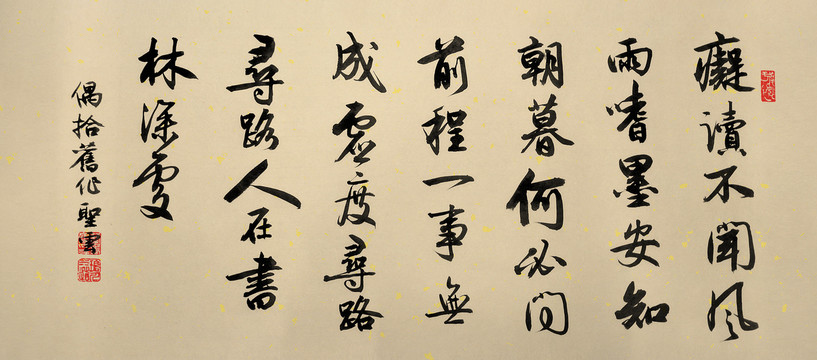 癡讀不聞風
雨嗜墨安知
朝暮何必問
前程一事無
成虛度尋路
尋路人在書
林深處
偶拾舊作聖雲